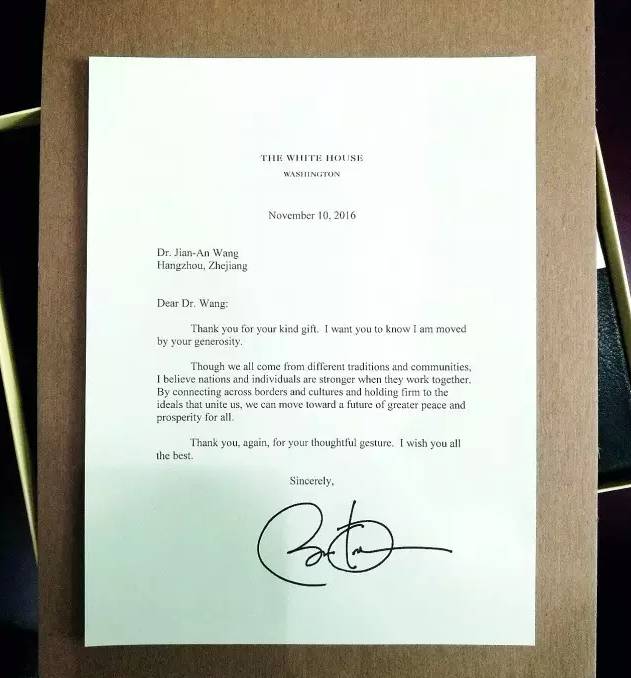 THE WHITE HOUSE
WASHINGTON
November 10, 2016
Dr. Jian-An Wang
Hangzhou, Zhejiang
Dear Dr. Wang:
Thank you for your kind gift. I want you to know I am moved
by your generosity.
Though we all come from different traditions and communities,
I believe nations and individuals are stronger when they work together.
By connecting across borders and cultures and holding firm to the
ideals that unite us, we can move toward a future of greater peace and
prosperity for all.
Thank you, again, for your thoughtful gesture. I wish you all
the best.
Sincerely,